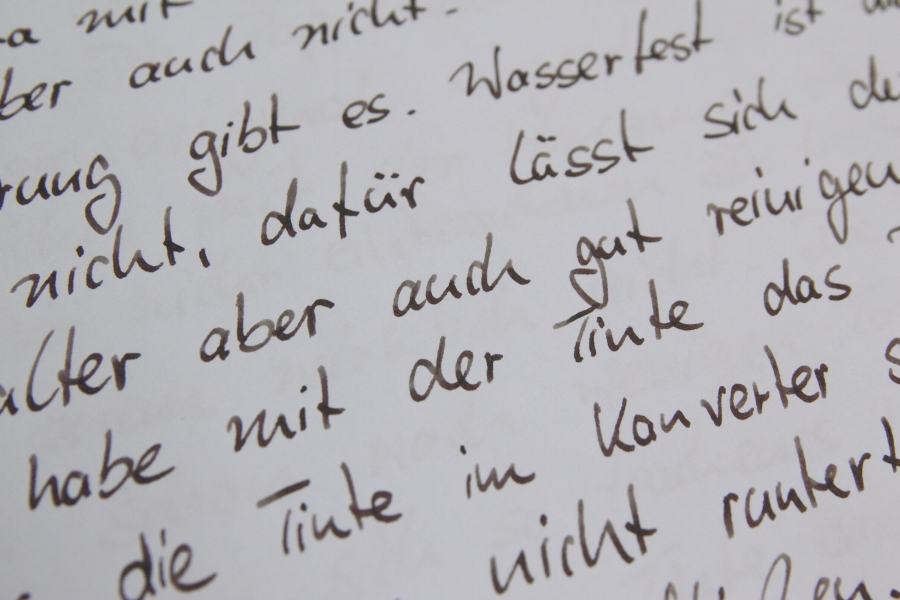 mit
ber auch nicht.
rung gibt es. Wasserfest ist
nicht, dafür lässt sich de
alter aber auch gut reinigen
habe mit der Tinte das
die Tinte im Konverter s
nicht runtert